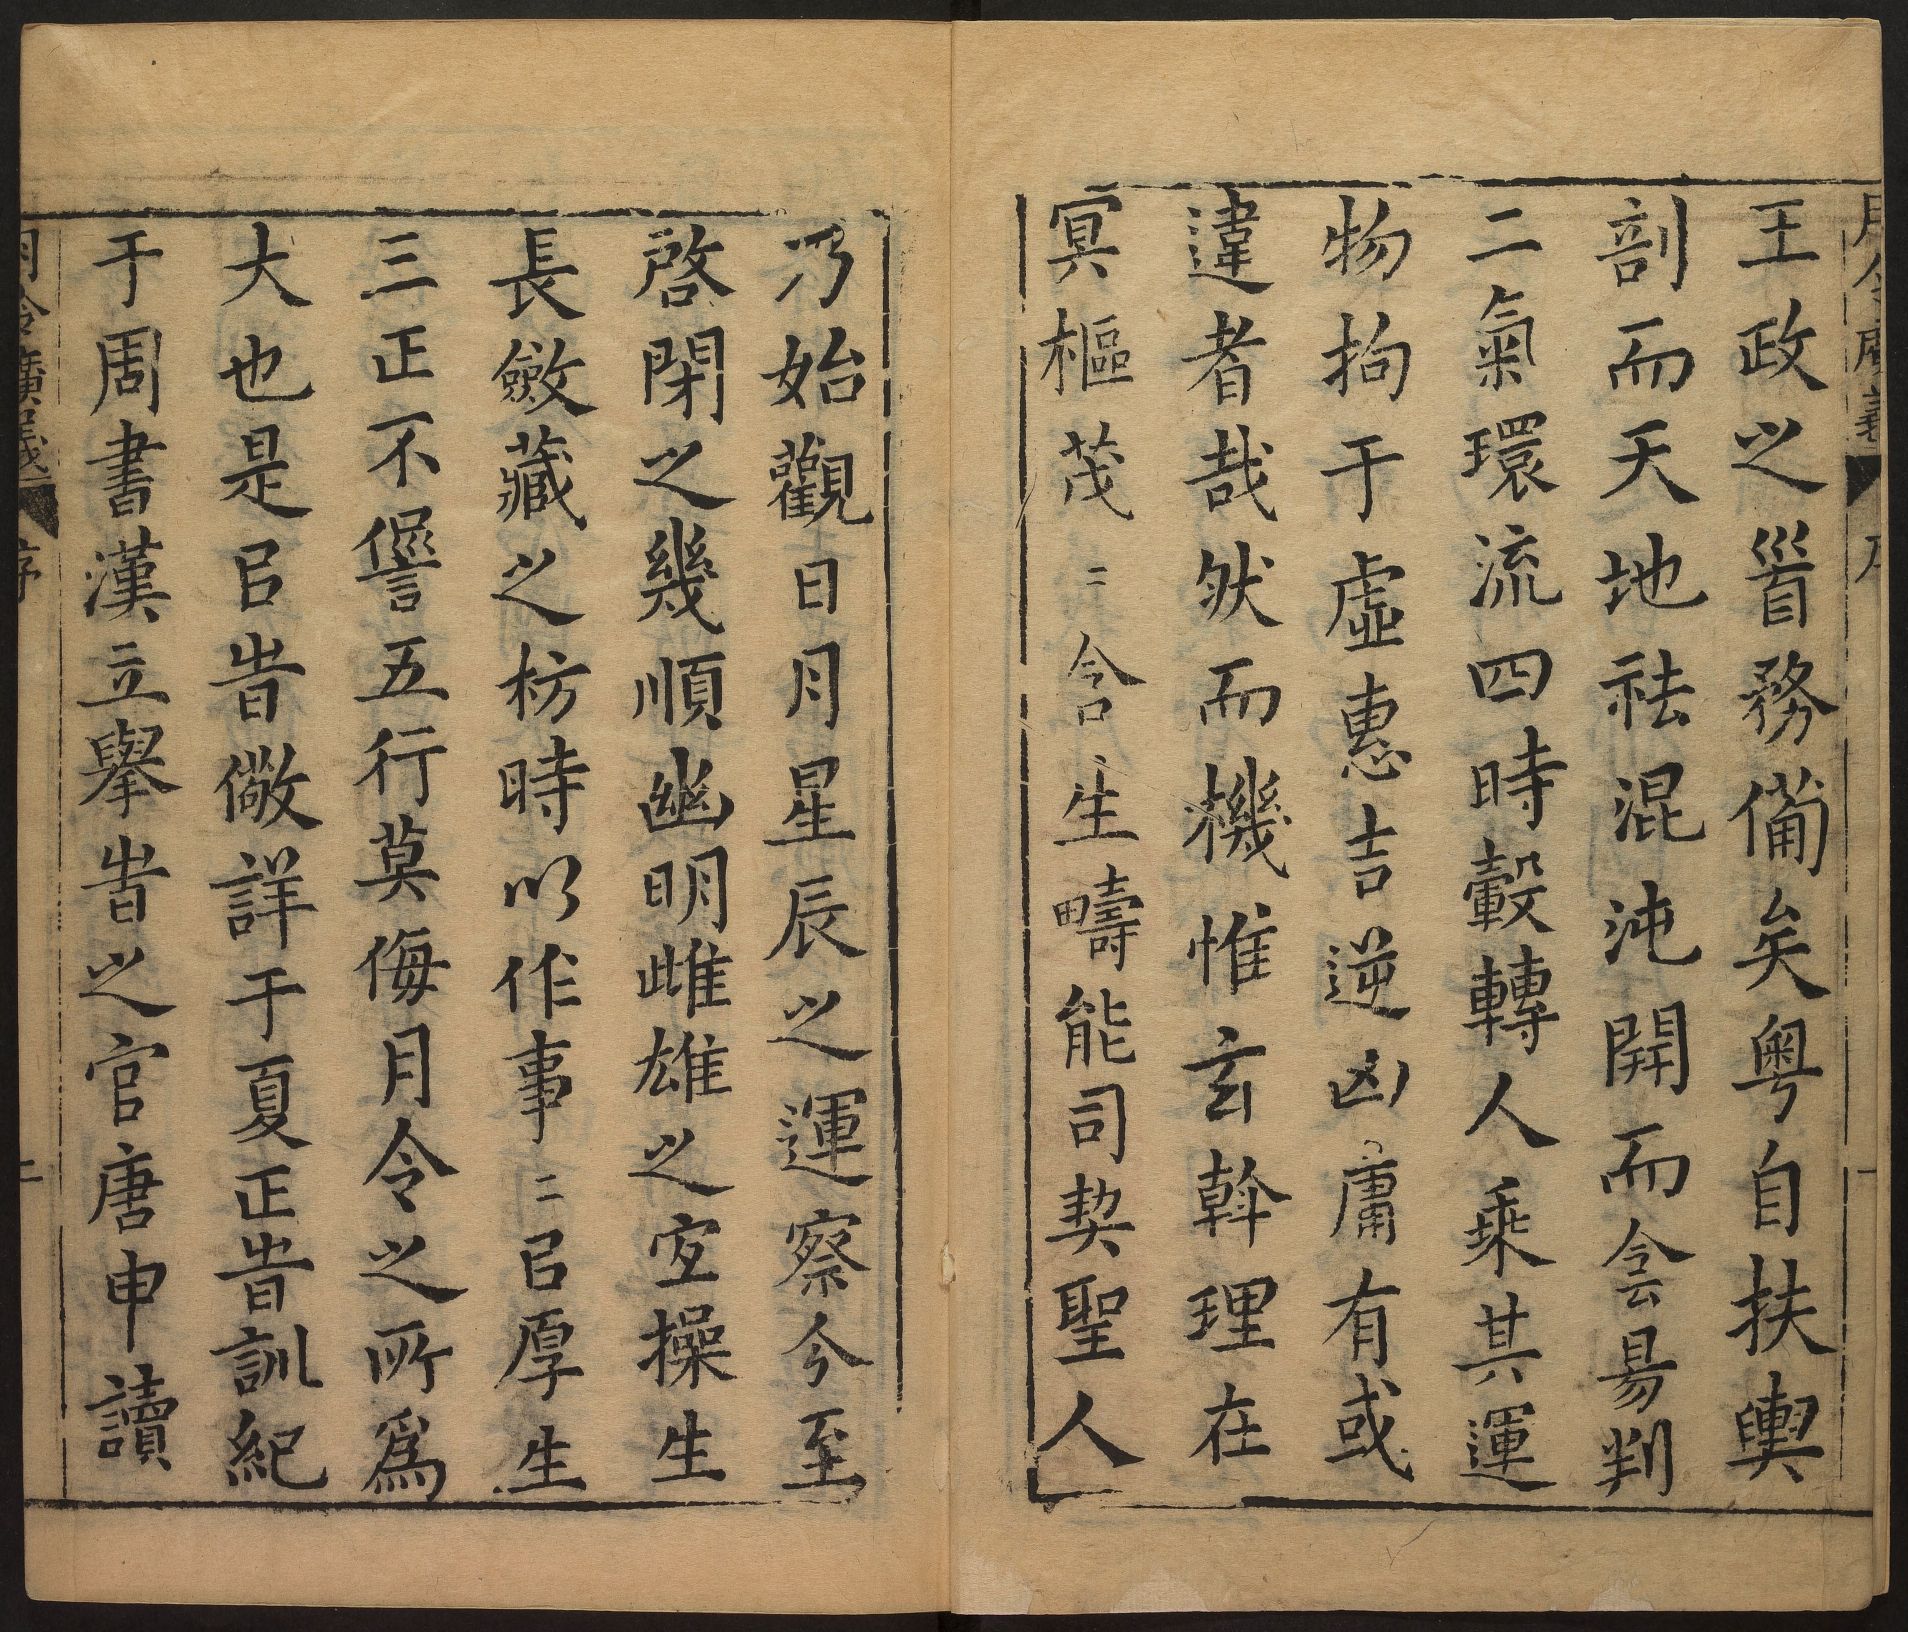 月令廣義
王政之首務備矣粵自扶輿
剖而天地祛混沌開而侌昜判
二氣環流四時轂轉人乘其運
物拘于虛惠吉逆凶庸有或
違者哉然而機惟玄斡理在
冥樞茂〻含生疇能司契聖人
乃始觀日月星辰之運察今至
啓閉之幾順幽明雌雄之宐操生
長斂藏之枋時以作事〻㠯厚生
三正不諐五行莫侮月令之所爲
大也是㠯旹儆詳于夏正旹訓紀
于周書漢立舉旹之官唐申讀
月令廣義
序
二